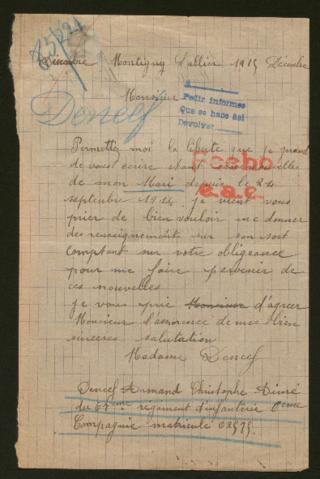 Montigny l'allier 1915 Decembre
Monsieur
Pedir informes
Que se hace asi
Devolver
Dencef
Permettez moi la liberte que je prend
de vous écrire étant sans nouvelles
de mon Mari depuis le 24
septembre 1914 je vient vous
prier de bien vouloir me donner
des renseignements sur son sort
comptant sur votre obligeance
pour me faire parvenir de
ces nouvelles
je vous prie Monsieur d'agréer
Monsieur l'assurance de mes bien
sincères salutation
Madame Dencef
Fecho
Dencef Armand Christophe
du régiment d'infanterie
Compagnie matricule